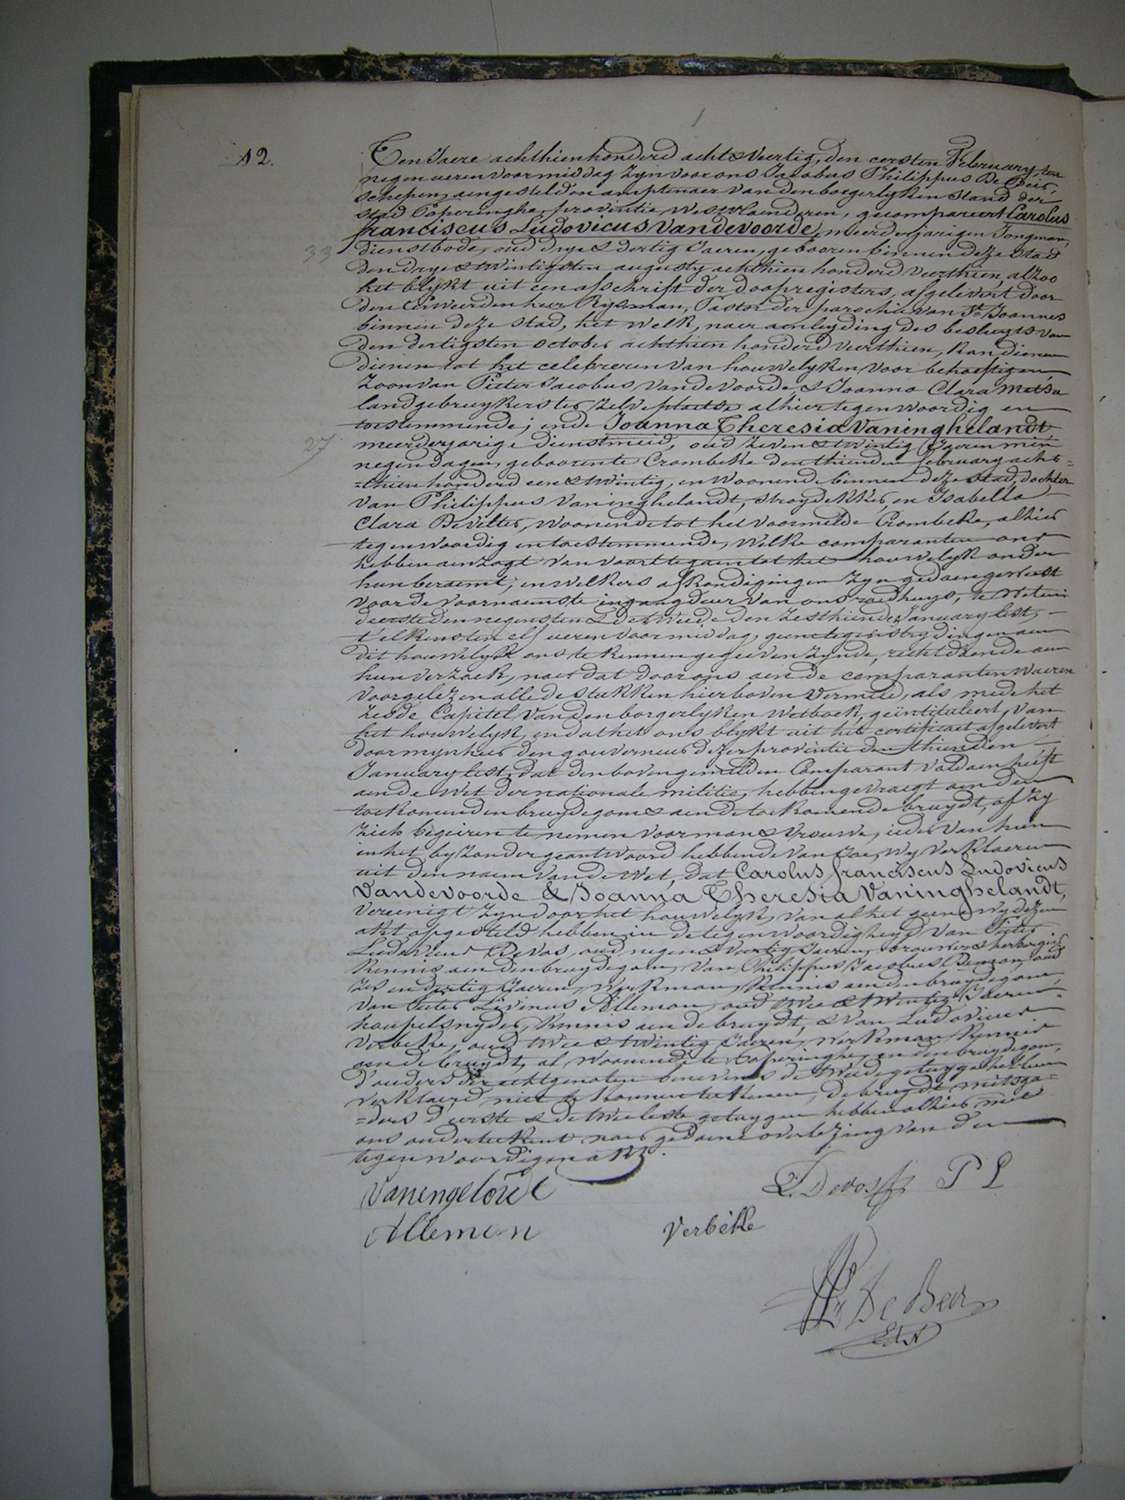 12.
Ten Jaere achthienhonderd acht & veertig, den eersten February, ten
negen ueren voormiddag zyn voor ons Jacobus Philippus De Beir,
schepen, aengestelden amptenaer van den borgerlyken stand der
stad Poperinghe, provintie Westvlaenderen, gecompareert Carolus
franciscus Ludovicus Vandevoorde, meerderjarigen Jongman,
33
dienstbode, oud drye & dertig Jaeren, gebooren binnen deze stad
den drye & twintigsten augusty achthien honderd veerthien, alzoo
het blykt uit een afschrift der doopregisters, afgelevert door
den Eerweerden heer Rysman, Pastor der parochie van St Joannes
binnen deze stad, het welk, naer aenleyding des besluyts van
den dertigsten october achthien honderd veerthien, kan dienen
dienen tot het celebreren van houwelyken voor behoeftigen
Zoon van Pieter Jacobus Vandevoorde & Joanna Clara Metsu
landgebruykers ter zelve plaetse alhier tegenwoordig en
toestemmende; ende Joanna Theresia Vaninghelandt
27
meerderjarige dienstmeid, oud zeven & twintig Jaeren min
negen dagen, geboren te Crombeke den thienden february acht=
=thien honderd een & twintig, en woonende binnen deze stad, dochter
van Philippus Vaninghelandt, stroydekker, en Isabella
Clara Develter, woonende tot het voormelde Crombeke, alhier
tegenwoordig en toestemmende, Welke comparanten ons
hebben aenzogt van voort te gaen tot het houwelyk onder
hun beraemt; en welkers afkondigingen zyn gedaen geweest
voor de voornaemste ingangdeur van ons raedhuys, te weten
d'eerste den negensten & de tweede den zesthiende January lest,
t'elkensten elf ueren voormiddag, geene tegenstrydingen aen
dit houwelyk ons te kennen gegeven zynde, recht doende aen
hun verzoek, naer dat door ons aen de comparanten waeren
voorgelezen alle de stukken hierboven vermeld, als mede het
zesde Capitel van den borgerlyken Wetboek, geintituleert, van
het houwelyk, en dat het ons blykt uit het certificaet afgelevert
door mynheer den gouverneur dezer provintie den thienden
January lest, dat den bovengemelden Comparant voldaen heeft
aen de wet der nationale militie, hebben gevraegt aen den
toekomenden bruydegom & aen de toekomende bruydt, of zy
zich begeiren te nemen voor man & vrouwe, ieder van hun
in het byzonder geantwoord hebbende van Ja, Wy verklaeren
uit den naem van de Wet, dat Carolus franciscus Ludovicus
Vandevoorde & Joanna Theresia Vaninghelandt,
vereenigt zyn door het houwelyk, van al het geene wy dezen
akt opgesteld hebben in de tegenwoordigheyd van Pieter
Ludovicus Devos, oud negen & veertig Jaeren, brouwer & herbergier
kennis aen den bruydegom, van Philippus Jacobus oud
zes en dertig Jaeren, Werkman, kennis aen den bruydegom,
van Pieter Livinus Allemon, oud twee & twintig Jaeren
hoepelsnyder, kennis aen de bruydt, & van Ludovicus
Verbeke, oud twee & twintig Jaeren, werkman kennis
aen de bruydt, al woonende te Poperinghe, en den bruydegom,
d'ouders der echtgenoten benevens de tweede getuyge hebben
verklaerd niet te konnen teekenen, de bruydt mitsga=
=ders d'eerste & de twee leste getuygen hebben alhier met
ons onderteekent naer gedaene overlezing van den
tegenwoordigen akt.
Vaningeland L. Devos P L
Allemon Verbeke
De Beir